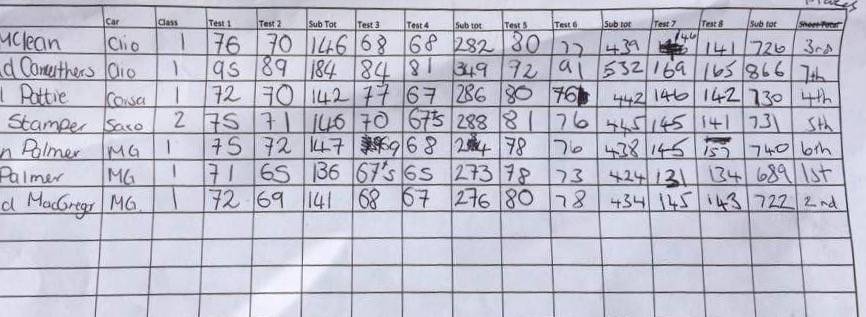 Car Class Test 1 Test 2 Sub Tot Test 3 Test 4 Sub tot Test 5 Test 6 Sub tot Test 7 Test 8 Sub tot Sheet Total
McLean Clio 1 76 70 146 68 68 282 80 77 439 146 141 726 3rd
d Carruthers Clio 1 95 89 184 84 81 349 92 91 532 169 165 866 7th
Pattie Corsa 1 72 70 142 77 67 286 80 76 442 146 142 730 4th
Stamper Saxo 2 75 71 146 70 67's 288 81 76 445 145 141 731 5th
n Palmer MG 1 75 72 147 69 68 284 78 76 438 145 157 740 6th
Palmer MG 1 71 65 136 67's 65 273 78 73 424 131 134 689 1st
d MacGregr MG. 1 72 69 141 68 67 276 80 78 434 145 143 722 2nd